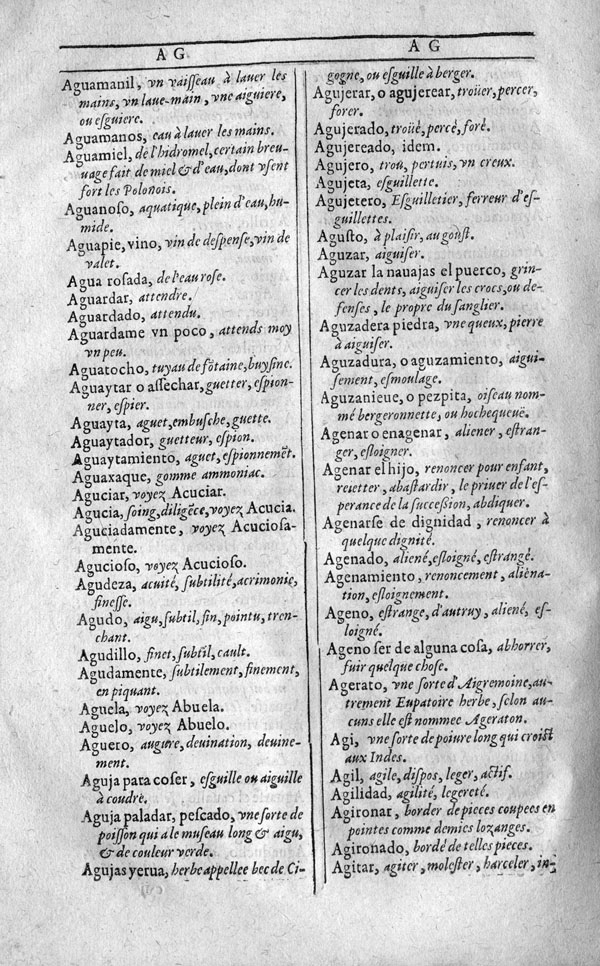 AG
Aguamanil, vn vaiſſeau à lauer les
mains, vn laue-main, vne aiguiere,
ou eſguiere.
Aguamanos, eau à lauer les mains.
Aguamiel, de l'hidromel, certain breu-
uage fait de miel & d'eau, dont vſent
fort les Polonois.
Aguanoſo, aquatique, plein d'eau, hu-
mide.
Aguapie, vino, vin de deſpenſe, vin de
valet.
Agua roſada, de l'eau roſe.
Aguardar, attendre.
Aguardado, attendu.
Aguardame vn poco, attends moy
vn peu.
Aguatocho, tuyau de fõtaine, buyſine.
Aguaytar o aſſechar, guetter, eſpion-
ner, eſpier.
Aguayta, aguet, embuſche, guette.
Aguaytador, guetteur, eſpion.
Aguaytamiento, aguet, eſpionnemẽt.
Aguaxaque, gomme ammoniac.
Aguciar, voyez Acuciar.
Agucia, ſoing, diligẽce, voyez Acucia.
Aguciadamente, voyez Acucioſa-
mente.
Agucioſo, voyez Acucioſo.
Agudeza, acuité, ſubtilité, acrimonie,
fineſſe.
Agudo, aigu, ſubtil, fin, pointu, tren-
chant.
Agudillo, finet, ſubtil, cault.
Agudamente, ſubtilement, finement,
en piquant.
Aguela, voyez Abuela.
Aguelo, voyez Abuelo.
Aguero, augure, deuination, deuine-
ment.
Aguja para coſer, eſguille ou aiguille
à coudre.
Aguja paladar, peſcado, vne ſorte de
poiſſon qui a le muſeau long & aigu,
& de couleur verde.
Agujas yerua, herbe appellee bec de Ci-
AG
gogne, ou eſguille à berger.
Agujerar, o agujerear, troüer, percer,
forer.
Agujerado, troüé, percé, foré.
Agujereado, idem.
Agujero, trou, pertuis, vn creux.
Agujeta, eſguillette.
Agujetero, Eſguilletier, ferreur d'eſ-
guillettes.
Aguſto, à plaiſir, au gouſt.
Aguzar, aiguiſer.
Aguzar la nauajas el puerco, grin-
cer les dents, aiguiſer les crocs, ou de-
fenſes, le propre du ſanglier.
Aguzadera piedra, vne queux, pierre
à aiguiſer.
Aguzadura, o aguzamiento, aigui-
ſement, eſmoulage.
Aguzanieue, o pezpita, oiſeau nom-
mé bergeronnette, ou hochequeuë.
Agenar o enagenar, aliener, eſtran-
ger, eſloigner.
Agenar el hijo, renoncer pour enfant,
reietter, abaſtardir, le priuer de l'eſ-
perance de la ſucceſsion, abdiquer.
Agenarſe de dignidad, renoncer à
quelque dignité.
Agenado, aliené, eſloigné, eſtrangé.
Agenamiento, renoncement, aliena-
tion, eſloignement.
Ageno, eſtrange, d'autruy, aliené, eſ-
loigné.
Ageno ſer de alguna coſa, abhorrer,
fuir quelque choſe.
Agerato, vne ſorte d'Aigremoine, au-
trement Eupatoire herbe, ſelon au-
cuns elle eſt nommee Ageraton.
Agi, vne ſorte de poiure long qui croiſt
aux Indes.
Agil, agile, diſpos, leger, actif.
Agilidad, agilité, legereté.
Agironar, border de pieces coupees en
pointes comme demies lozanges.
Agironado, bordé de telles pieces.
Agitar, agiter, moleſter, harceler, in-